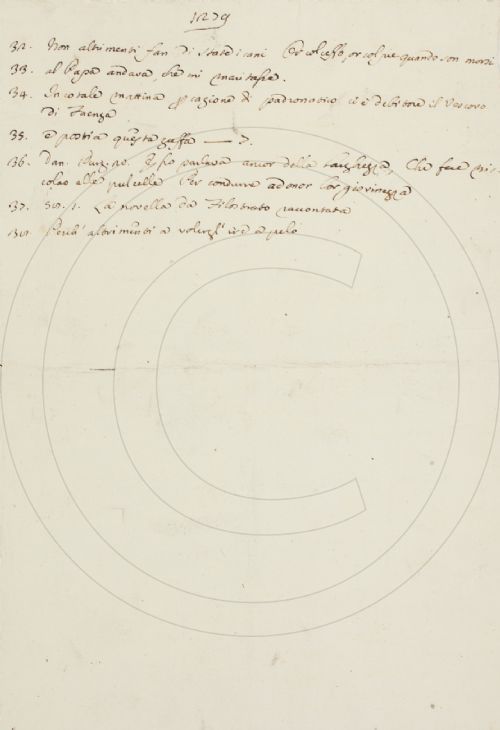 1279
32. Non altrimenti fan di state i cani Col ceffo, or col pie quando son morsi
33. al Papa andava, che mi maritasse.
34. In cotale mattina p cagione di padronatico si è debitore il Vescovo
di Faenza
35. e poscia questa zaffa — 7.
36. Dan. Purg. 20. Esso parlava ancor della larghezza, Che fece Nic-
colao alle pulcelle Per condurre ad onor lor giovinezza
37. 50. 1. La novella da Filostrato raccontata
38. Perch' altrimenti a volergli ire a pelo